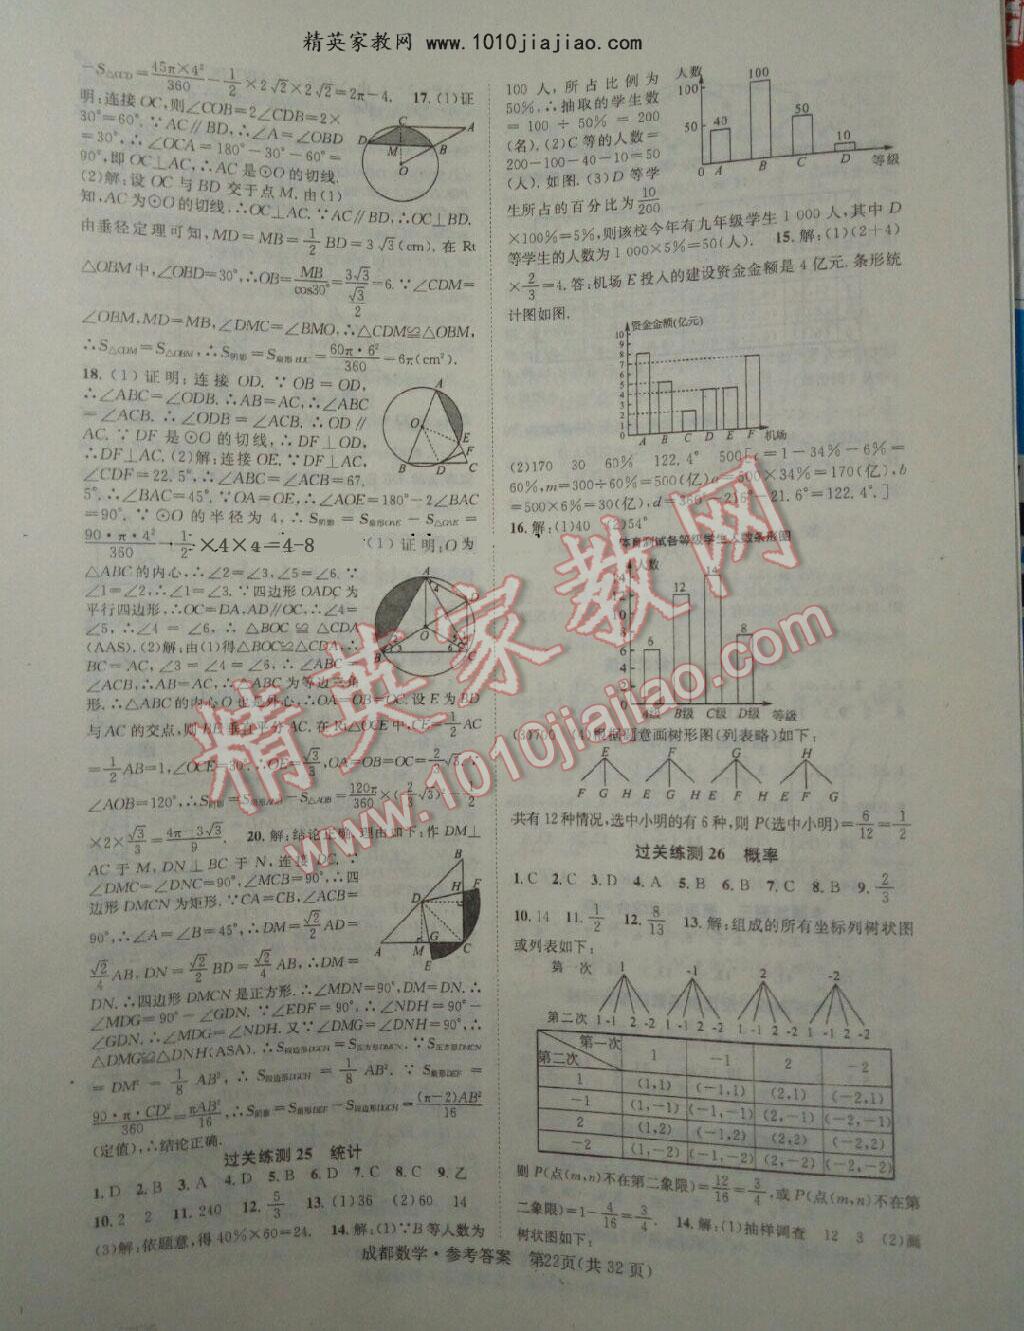 精英家教网 www.1010jiajiao.com
－S△OCD＝45π×4²/360－1/2×2√2×2√2＝2π－4. 17.(1)证
明:连接OC,则∠COB＝2∠CDB＝2×
30°＝60°.∵AC∥BD,∴∠A＝∠OBD
＝30°,∴∠OCA＝180°－30°－60°＝
90°,即OC⊥AC,∴AC是⊙O的切线.
(2)解:设OC与BD交于点M,由(1)
知,AC为⊙O的切线.∴OC⊥AC.∵AC∥BD,∴OC⊥BD.
由垂径定理可知,MD＝MB＝1/2BD＝3√3(cm).在Rt
△OBM中,∠OBD＝30°,∴OB＝MB/cos30°＝3√3/(√3/2)＝6.∵∠CDM＝
∠OBM,MD＝MB,∠DMC＝∠BMO,∴△CDM≌△OBM,
∴S△CDM＝S△OBM,∴S阴影＝S扇形BOC＝60π·6²/360＝6π(cm²).
18.(1)证明:连接OD.∵OB＝OD,
∴∠ABC＝∠ODB.∴AB＝AC,∴∠ABC
＝∠ACB.∴∠ODB＝∠ACB.∴OD∥
AC.∵DF是⊙O的切线,∴DF⊥OD,
∴DF⊥AC.(2)解:连接OE.∵DF⊥AC,
∠CDF＝22.5°,∴∠ABC＝∠ACB＝67.
5°,∴∠BAC＝45°.∵OA＝OE,∴∠AOE＝180°－2∠BAC
＝90°.∵⊙O的半径为4,∴S阴影＝S扇形OAE－S△OAE＝
90·π·4²/360－1/2×4×4＝4-8 (1)证明:O为
△ABC的内心,∴∠2＝∠3,∠5＝∠6.∵
∠1＝∠2,∴∠1＝∠3.∵四边形OADC为
平行四边形,∴OC＝DA,AD∥OC,∴∠4＝
∠5,∴∠4＝∠6,∴△BOC≌△CDA
(AAS).(2)解:由(1)得△BOC≌△CDA,∴
BC＝AC,∠3＝∠4＝∠6,∴∠ABC＝
∠ACB,∴AB＝AC,∴△ABC为等边三角
形.∴△ABC的内心O也是外心,∴OA＝OB＝OC.设E为BD
与AC的交点,则BE垂直平分AC.在Rt△OCE中,CE＝1/2AC
＝1/2AB＝1,∠OCE＝30°,∴OE＝√3/3,OA＝OB＝OC＝2/3√3.∴
∠AOB＝120°,∴S阴影＝S扇形AOB－S△AOB＝120π/360×(2/3√3)²－1/2
×2×√3/3＝(4π－3√3)/9. 20.解:结论正确.理由如下:作DM⊥
AC于M,DN⊥BC于N,连接DC.∵
∠DMC＝∠DNC＝90°,∠MCB＝90°,∴四
边形DMCN为矩形.∵CA＝CB,∠ACB＝
90°,∴∠A＝∠B＝45°,∴DM＝√2/2AD＝
√2/4AB,DN＝√2/2BD＝√2/4AB,∴DM＝
DN.∴四边形DMCN是正方形.∴∠MDN＝90°,DM＝DN.∴
∠MDG＝90°－∠GDN.∵∠EDF＝90°,∴∠NDH＝90°－
∠GDN.∴∠MDG＝∠NDH.又∵∠DMG＝∠DNH＝90°,∴
△DMG≌△DNH(ASA).∴S四边形DGCH＝S正方形DMCN.∵S正方形DMCN
＝DM²＝1/8AB²,∴S四边形DGCH＝1/8AB².∵S扇形DEF＝
90·π·CD²/360＝πAB²/16,∴S阴影＝S扇形DEF－S四边形DGCH＝(π－2)AB²/16
(定值),∴结论正确.
过关练测25 统计
1.D 2.B 3.A 4.D 5.B 6.D 7.C 8.C 9.乙
10.2 2 11.240 12.5/3 13.(1)36 (2)60 14
(3)解:依题意,得40%×60＝24. 14.解:(1)∵B等人数为
100人,所占比例为
50%,∴抽取的学生数
＝100÷50%＝200
(名).(2)C等的人数＝
200－100－40－10＝50
(人).如图.(3)D等学
生所占的百分比为10/200
×100%＝5%,则该校今年有九年级学生1 000人,其中D
等学生的人数为1 000×5%＝50(人). 15.解:(1)(2＋4)
×2/3＝4.答:机场E投入的建设资金金额是4亿元.条形统
计图如图.
人数
100
50
40 100 50 10
A B C D 等级
资金金额(亿元)
10
9
8
7
6
5
4
3
2
1
0
A B C D E F 机场
(2)170 30 60% 122.4° 500 [c＝1－34%－6%＝
60%,m＝300÷60%＝500(亿),a＝500×34%＝170(亿),b
＝500×6%＝30(亿),d＝360°－216°－21.6°＝122.4°.]
16.解:(1)40 (2)54°
体育测试各等级学生人数条形图
人数
14
12
10
8
6
4
2
0
6 12 14 8
A级 B级 C级 D级 等级
(3)700 (4)根据题意画树形图(列表略)如下:
E F G H
F G H E G H E F H E F G
共有12种情况,选中小明的有6种,则P(选中小明)＝6/12＝1/2
过关练测26 概率
1.C 2.C 3.D 4.A 5.B 6.B 7.C 8.B 9.2/3
10.14 11.1/2 12.8/13 13.解:组成的所有坐标列树状图
或列表如下:
第一次 1 -1 2 -2
第二次 1 -1 2 -2 1 -1 2 -2 1 -1 2 -2 1 -1 2 -2
第二次 第一次 1 －1 2 －2
1 (1,1) (－1,1) (2,1) (－2,1)
－1 (1,－1) (－1,－1) (2,－1) (－2,－1)
2 (1,2) (－1,2) (2,2) (－2,2)
－2 (1,－2) (－1,－2) (2,－2) (－2,－2)
则P(点(m,n)不在第二象限)＝12/16＝3/4,或P(点(m,n)不在第
二象限)＝1－4/16＝3/4. 14.解:(1)抽样调查 12 3 (2)画
树状图如下:
成都数学·参考答案 第22页(共32页)
精英家教网
www.1010jiajiao.com